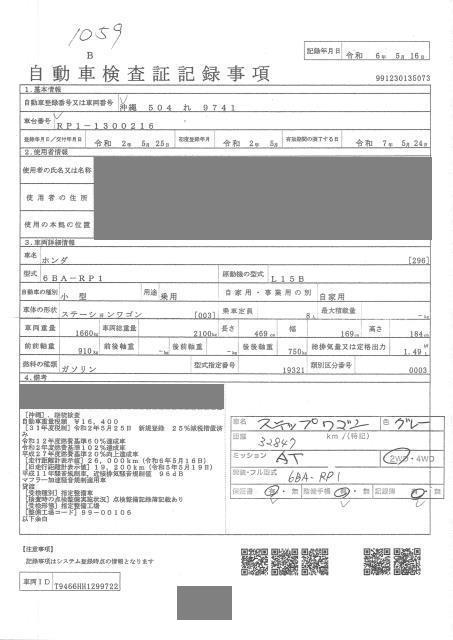 1059
B
記録年月日 令和 6年 5月16日
自動車検査証記録事項
991230135073
1.基本情報
自動車登録番号又は車両番号 沖縄 504 れ 9741
車台番号 RP1-1300216
登録年月日/交付年月日 令和 2年 5月25日 初度登録年月 令和 2年 5月 有効期間の満了する日 令和 7年 5月24日
2.使用者情報
使用者の氏名又は名称
使用者の住所
使用の本拠の位置
3.車両詳細情報
車名 ホンダ [296]
型式 6BA-RP1 原動機の型式 L15B
自動車の種別 小型 用途 乗用 自家用・事業用の別 自家用
車体の形状 ステーションワゴン [003] 乗車定員 8人 最大積載量 -kg
車両重量 1660kg 車両総重量 2100kg 長さ 469cm 幅 169cm 高さ 184cm
前前軸重 910kg 前後軸重 -kg 後前軸重 -kg 後後軸重 750kg 総排気量又は定格出力 1.49
燃料の種類 ガソリン 型式指定番号 19321 類別区分番号 0003
4.備考
[沖縄],継続検査
自動車重量税額 ¥16,400
[31年度税制](令和2年5月25日 新規登録 25%減税措置済
み
令和12年度燃費基準60%達成車
令和2年度燃費基準102%達成車
平成27年度燃費基準20%向上達成車
[走行距離計表示値]26,000km(令和6年5月16日)
[旧走行距離計表示値]19,200km(令和5年5月19日)
平成11年騒音規制車,近接排気騒音規制値 96dB
マフラー加速騒音規制適用車
[受検種別]指定整備車
[検査時の点検整備実施状況]点検整備記録簿記載あり
[受検形態]指定整備工場
[整備工場コード]99-00106
以下余白
車名 ステップワゴン 色 グレー
距離 32847 km/(特記)
ミッション AT 2WD・4WD
型式・フル型式 6BA-RP1
保証書 有・無 取扱手帳 有・無 記録簿 有・無
【注意事項】
記録事項はシステム登録時点の情報となります
車両ID T9466HH1299722